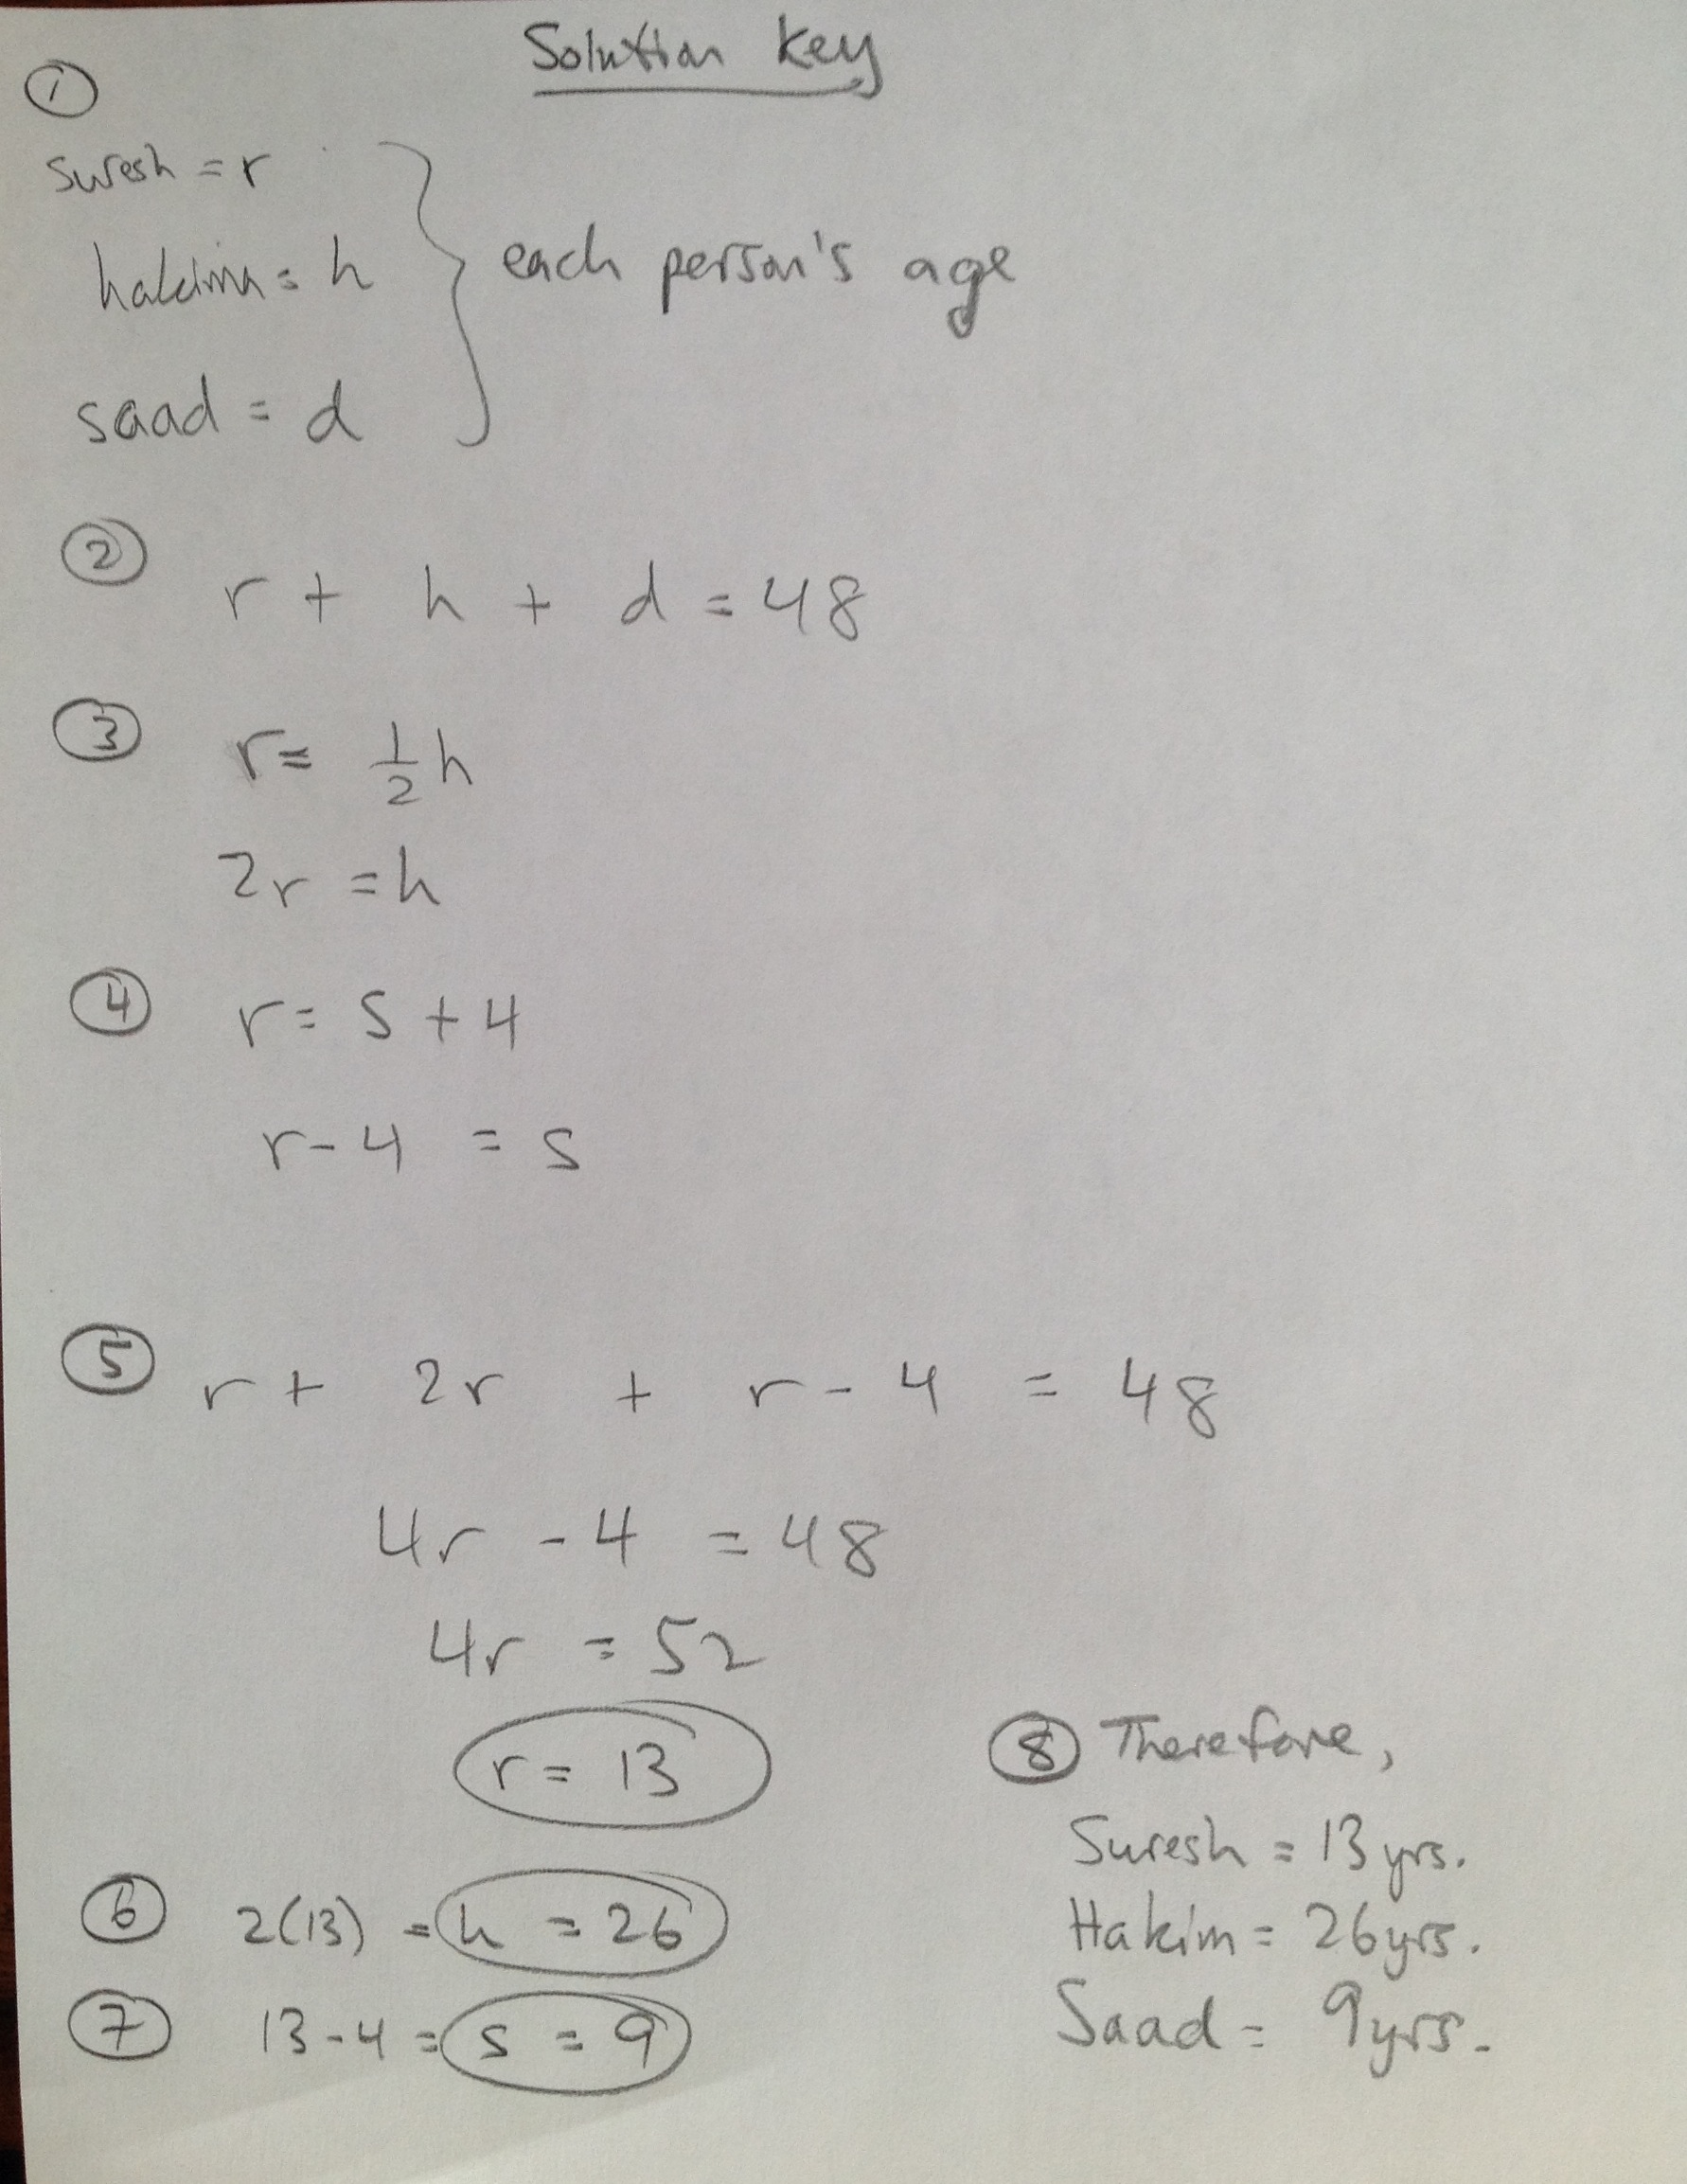 Solution Key
①
suresh = r
hakim = h
each person's age
saad = d
② r + h + d = 48
③ r = 1/2 h
2r = h
④ r = s + 4
r - 4 = s
⑤ r + 2r + r - 4 = 48
4r - 4 = 48
4r = 52
r = 13
⑥ 2(13) = h = 26
⑦ 13 - 4 = s = 9
⑧ Therefore,
Suresh = 13 yrs.
Hakim = 26 yrs.
Saad = 9 yrs.